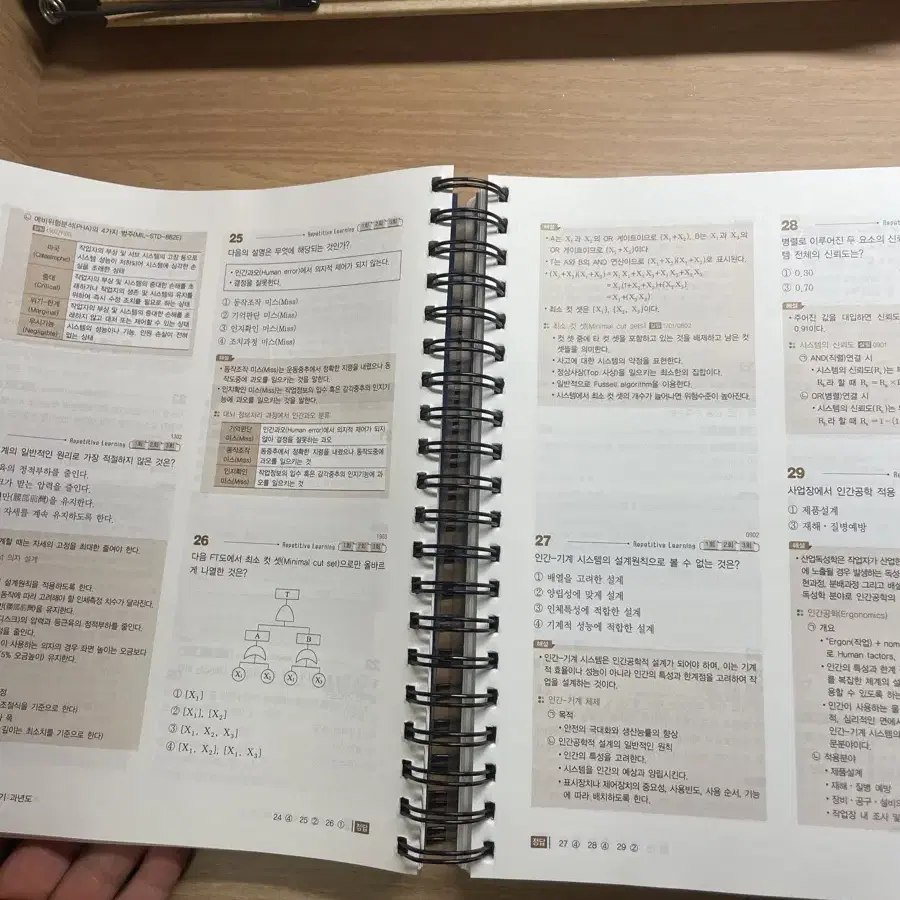 ㉡ 예비위험분석(PHA)의 4가지 범주(MIL-STD-882E)
파국
(Catastrophic)
작업자의 부상 및 서브 시스템의 고장 등으로
시스템 성능이 저하되어 시스템에 심각한 손
실을 초래한 상태
중대
(Critical)
작업자의 부상 및 시스템의 중대한 손해를 초
래하거나 작업자의 생존 및 시스템의 유지를
위하여 즉시 수정 조치를 필요로 하는 상태
위기-한계
(Marginal)
작업자의 부상 및 시스템의 중대한 손해를 초
래하지 않고 대처 또는 제어할 수 있는 상태
무시가능
(Negligible)
시스템의 성능이나 기능, 인원 손실이 전혀
없는 상태
1302
Repetitive Learning 1회 2회 3회
계의 일반적인 원리로 가장 적절하지 않은 것은?
육의 정적부하를 줄인다.
크가 받는 압력을 줄인다.
만(腰部前彎)을 유지한다.
자세를 계속 유지하도록 한다.
계할 때는 자세의 고정을 최대한 줄여야 한다.
의자 설계
설계원칙을 적용하도록 한다.
동작에 따라 고려해야 할 인체측정 치수가 달라진다.
만(腰部前彎)을 유지한다.
디스크)의 압력과 등근육의 정적부하를 줄인다.
업을 줄인다.
이 사용하는 의자의 경우 좌면 높이는 오금보다
(5% 오금높이) 유지한다.
정
조절식을 기준으로 한다)
폭
길이는 최소치를 기준으로 한다)
기 과년도
25
Repetitive Learning 1회 2회 3회
다음의 설명은 무엇에 해당되는 것인가?
• 인간과오(Human error)에서 의지적 제어가 되지 않는다.
• 결정을 잘못한다.
① 동작조작 미스(Miss)
② 기억판단 미스(Miss)
③ 인지확인 미스(Miss)
④ 조치과정 미스(Miss)
해설
• 동작조작 미스(Miss)는 운동중추에서 정확한 지령을 내렸으나 동
작도중에 과오를 일으키는 것을 말한다.
• 인지확인 미스(Miss)는 작업정보의 입수 혹은 감각중추의 인지기
능에 과오를 일으키는 것을 말한다.
대뇌 정보처리 과정에서 인간과오 분류
기억판단
미스(Miss)
인간과오(Human error)에서 의지적 제어가 되지
않아 결정을 잘못하는 과오
동작조작
미스(Miss)
운동중추에서 정확한 지령을 내렸으나 동작도중에
과오를 일으키는 것
인지확인
미스(Miss)
작업정보의 입수 혹은 감각중추의 인지기능에 과
오를 일으키는 것
26
Repetitive Learning 1회 2회 3회
다음 FT도에서 최소 컷 셋(Minimal cut set)으로만 올바르
게 나열한 것은?
T
A B
X₁ X₂ X₁ X₃
① [X₁]
② [X₁], [X₂]
③ [X₁, X₂, X₃]
④ [X₁, X₂], [X₁, X₃]
24 ④ 25 ② 26 ① 정답
해설
• A는 X₁과 X₂의 OR 게이트이므로 (X₁+X₂), B는 X₁과 X₃의
OR 게이트이므로 (X₁+X₃)이다.
• T는 A와 B의 AND 연산이므로 (X₁+X₂)(X₁+X₃)로 표시된다.
• (X₁+X₂)(X₁+X₃)=X₁X₁+X₁X₃+X₁X₂+X₂X₃
=X₁(1+X₃+X₂)+(X₂X₃)
=X₁+(X₂X₃)
• 최소 컷 셋은 {X₁}, {X₂, X₃}이다.
최소 컷 셋(Minimal cut sets) 실필 1301/0802
• 컷 셋 중에 타 컷 셋을 포함하고 있는 것을 배제하고 남은 컷
셋들을 의미한다.
• 사고에 대한 시스템의 약점을 표현한다.
• 정상사상(Top 사상)을 일으키는 최소한의 집합이다.
• 일반적으로 Fussell algorithm을 이용한다.
• 시스템에서 최소 컷 셋의 개수가 늘어나면 위험수준이 높아진다.
0902
27
Repetitive Learning 1회 2회 3회
인간-기계 시스템의 설계원칙으로 볼 수 없는 것은?
① 배열을 고려한 설계
② 양립성에 맞게 설계
③ 인체특성에 적합한 설계
④ 기계적 성능에 적합한 설계
해설
• 인간-기계 시스템은 인간공학적 설계가 되어야 하며, 이는 기계
적 효율이나 성능이 아니라 인간의 특성과 한계점을 고려하여 작
업을 설계하는 것이다.
인간-기계 체제
㉠ 목적
• 안전의 극대화와 생산능률의 향상
㉡ 인간공학적 설계의 일반적인 원칙
• 인간의 특성을 고려한다.
• 시스템을 인간의 예상과 양립시킨다.
• 표시장치나 제어장치의 중요성, 사용빈도, 사용 순서, 기능
에 따라 배치하도록 한다.
정답 27 ④ 28 ④ 29 ②
28
병렬로 이루어진 두 요소의 신
템 전체의 신뢰도는?
① 0.30
③ 0.70
해설
• 주어진 값을 대입하면 신뢰도
0.91이다.
시스템의 신뢰도 실필 0901
㉠ AND(직렬)연결 시
• 시스템의 신뢰도(Rₛ)는 부
㉡ OR(병렬)연결 시
• 시스템의 신뢰도(Rₛ)는 부
29
사업장에서 인간공학 적용
① 제품설계
③ 재해·질병예방
해설
• 산업독성학은 작업자가 산업현
에 노출될 경우 발생하는 독성
현과정, 분배과정 그리고 배설
독성학 분야로 인간공학의
인간공학(Ergonomics)
㉠ 개요
• "Ergon(작업) + nom
로 Human factors,
• 인간의 특성과 한계
를 복잡한 체계의 설
용할 수 있도록 하는
• 인간이 사용하는 물
적, 심리적인 면에서
인간-기계 시스템의
문분야이다.
㉡ 적용분야
• 제품설계
• 재해·질병 예방
• 장비·공구·설비의
• 작업장 내 조사 및